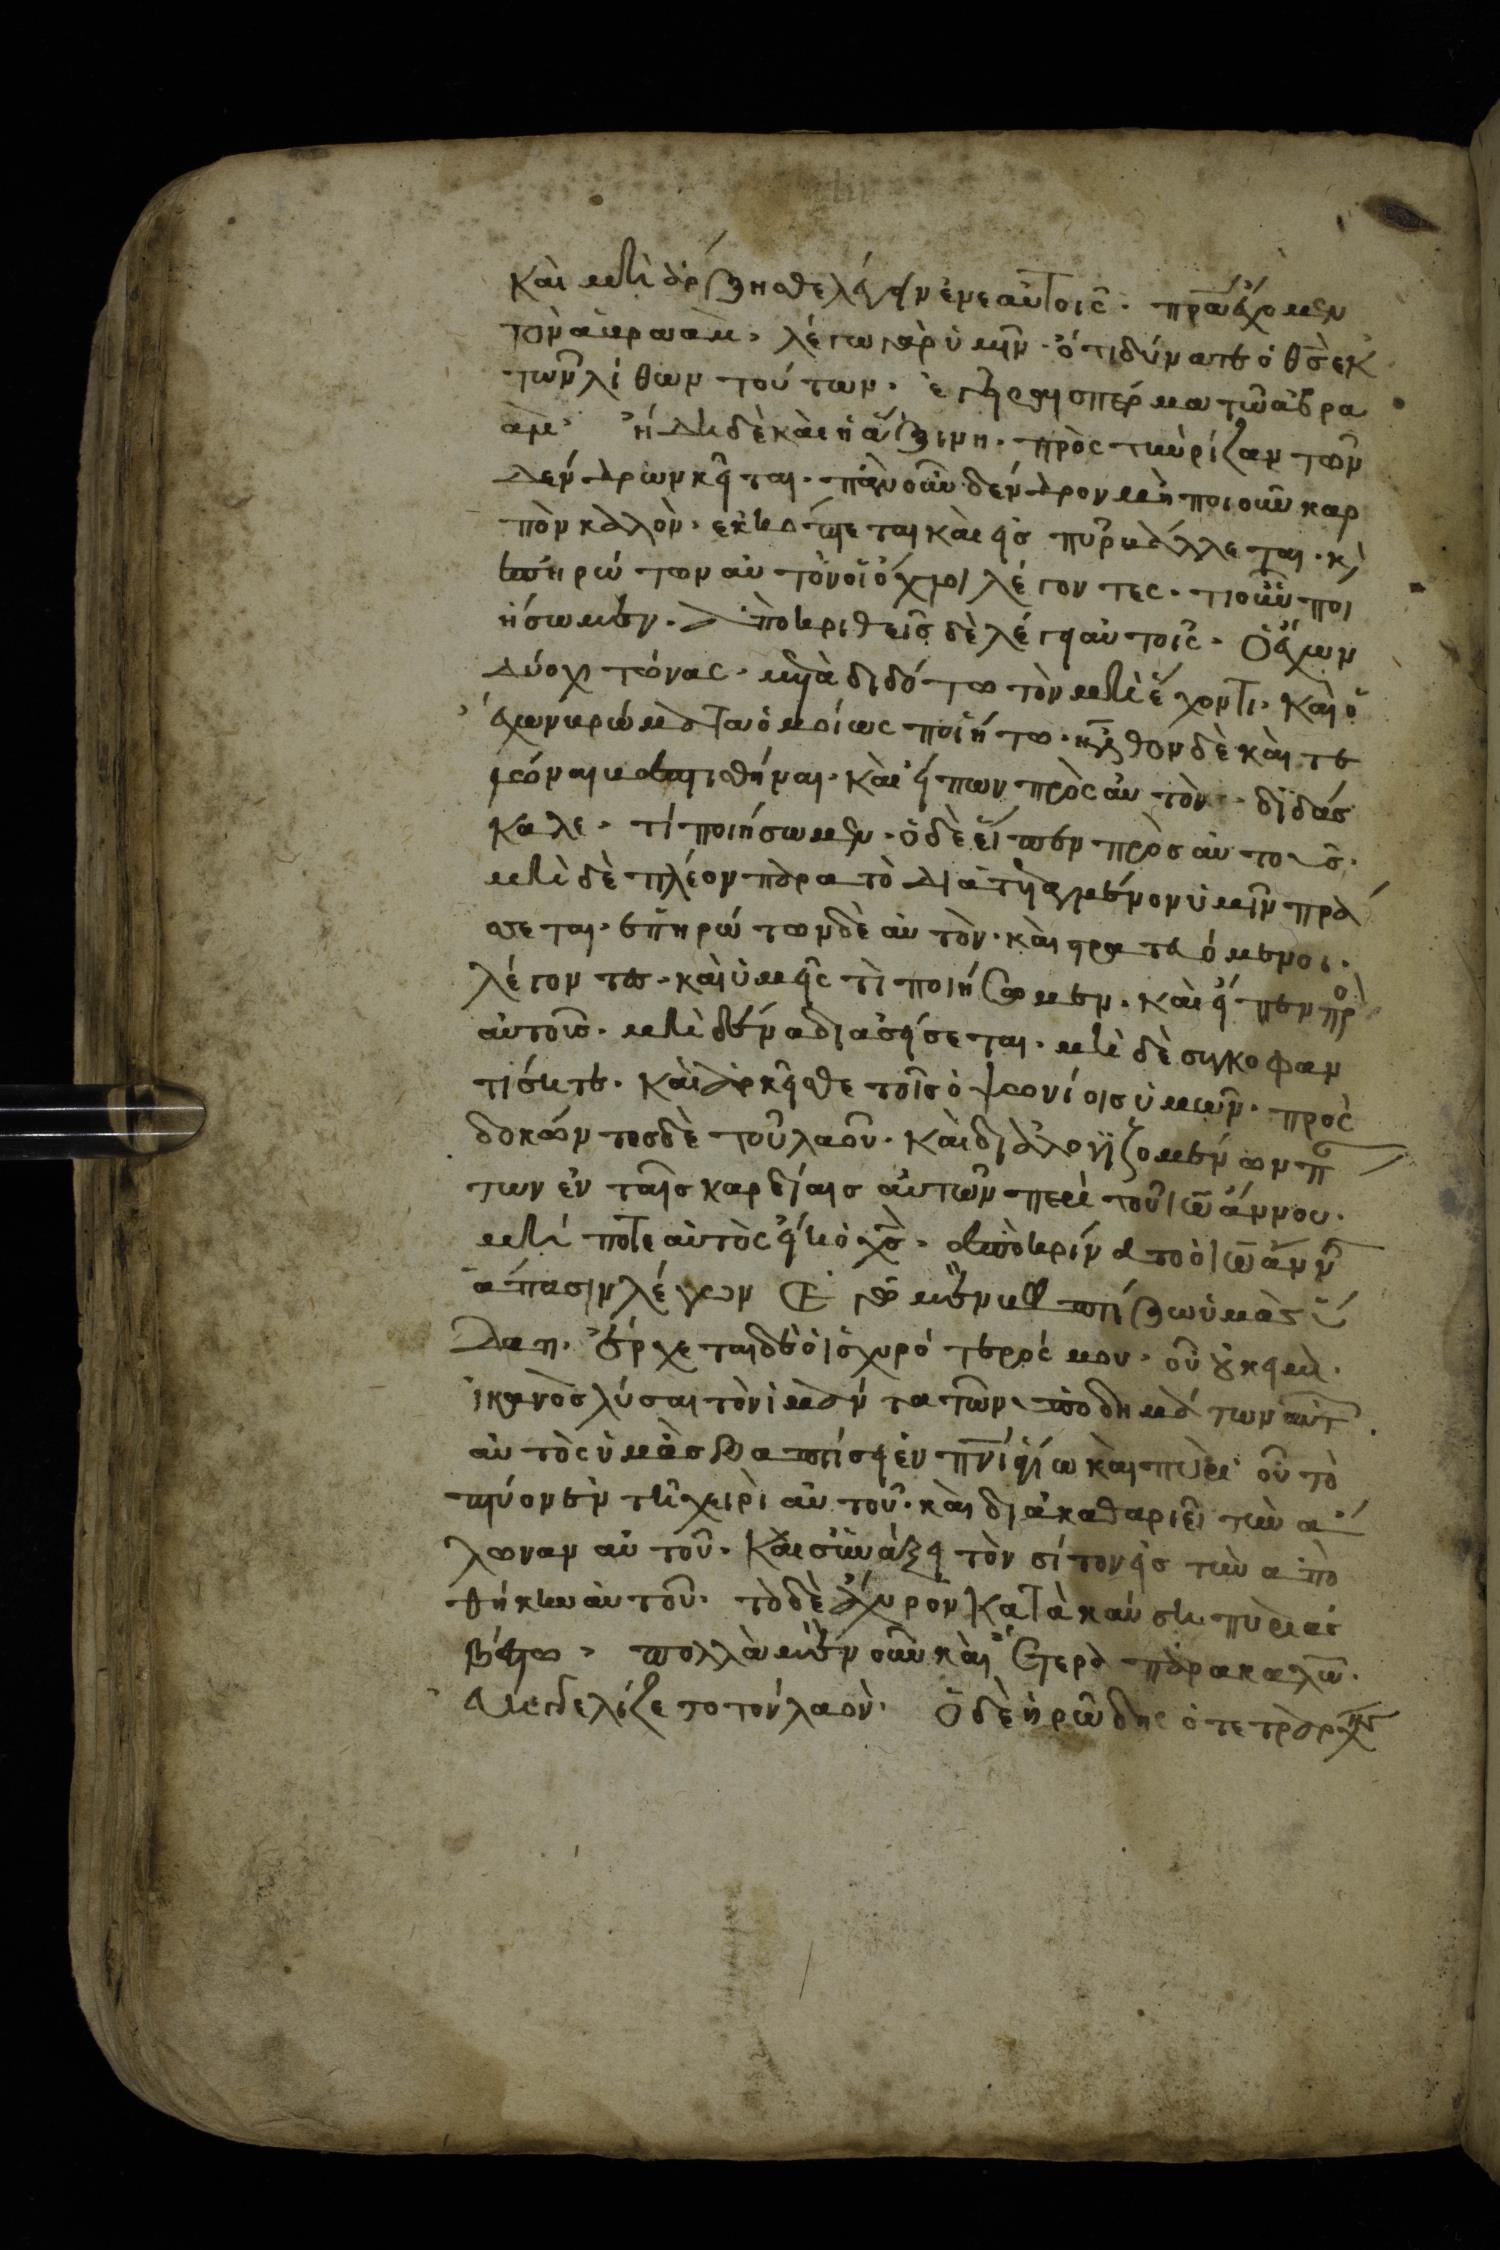 και μὴ ἄρξησθε λέγειν ἐν εαυτοις· πρα ἔχομεν
τὸν ἀβρααμ· λέγω γὰρ ὑμῖν· ὅτι δύναται ὁ θς ἐκ
τῶν λίθων τούτων· ἐγεῖραι σπέρμα τῶ ἀβρα
ὰμ· ἤδη δὲ καὶ ἡ ἀξίνη· πρὸς τὴν ρίζαν τῶν
δένδρων κεῖται· πᾶν οὖν δένδρον μὴ ποιοῦν καρ
πὸν καλὸν· εκκόπτεται καὶ εἰς πῦρ βάλλεται· κὶ
ἐπηρώτων αὐτὸν οἱ ὄχλοι λέγοντες· τί οὖν ποι
ήσωμεν· ἀποκριθεὶς δὲ λέγει αὐτοῖς· Ὁ ἔχων
δύο χιτώνας· μεταδιδότω τὸν μὴ ἔχοντι· Καὶ ὁ
ἔχων βρώματα ὁμοίως ποιήτω· ἦλθον δὲ καὶ τε
λῶναι βαπτισθῆναι· καὶ εἶπων πρὸς αὐτὸν· διδάσ
καλε· τί ποιήσωμεν· ὁ δὲ εἶπεν πρὸς αὐτους·
μὴ δὲ πλέον παρα τὸ διατεταγμένον ὑμῖν πρά
σεται· ἐπηρώτων δὲ αὐτὸν· καὶ στρατευόμενοι·
λέγοντες· καὶ ὑμεῖς τί ποιήσωμεν· καὶ εἶπεν πρὸ
αὐτοις· μὴ δένα διασείσεται· μὴ δὲ συκοφαν
τίσητε· καὶ ἀρκεῖσθε τοῖς ὀψωνίοις ὑμῶν· πρὸς
δοκῶντος δὲ τοῦ λαοῦ· καὶ διαλογιζομένων πάν
των ἐν ταῖς καρδίαις αὐτῶν περὶ τοῦ ἰωάννου·
μή ποτε αὐτὸς εἴη ὁ χς· ἀπὸκρίνατο ὁ ἰωάνν
ἅπασιν λέγων Ἐγὼ μὲν βαπτίζω ὑμὰς ὕ
δατι· ἔρχεται δὲ ὁ ἰσχυρότερός μου· οὗ οὐκ εἰμὶ·
ἱκανὸς λύσαι τὸν ἱμάντα τῶν ὑποδημάτων αὐτ
αὐτὸς ὑμὰς βαπτίσει ἐν πνι ἁγίω καὶ πυρὶ· οὗ τὸ
πτύον ἐν τῆ χειρὶ αὐτοῦ· καὶ διακαθαριεῖ τὴν ἅ
λωναν αὐτοῦ· Καὶ συνάξει τὸν σίτον εἰς τὴν ἀπὸ
θήκην αὐτοῦ· τὸ δὲ ἄχυρον κατακαύσει πυρὶ ἀσ
βέστω· πολλὰ μὲν οὖν καὶ ἕτερα παρακαλῶν·
εὐηγγελίζετο τόν λαὸν· Ὁ δὲ ἡρώδης ὁ τετράρχης